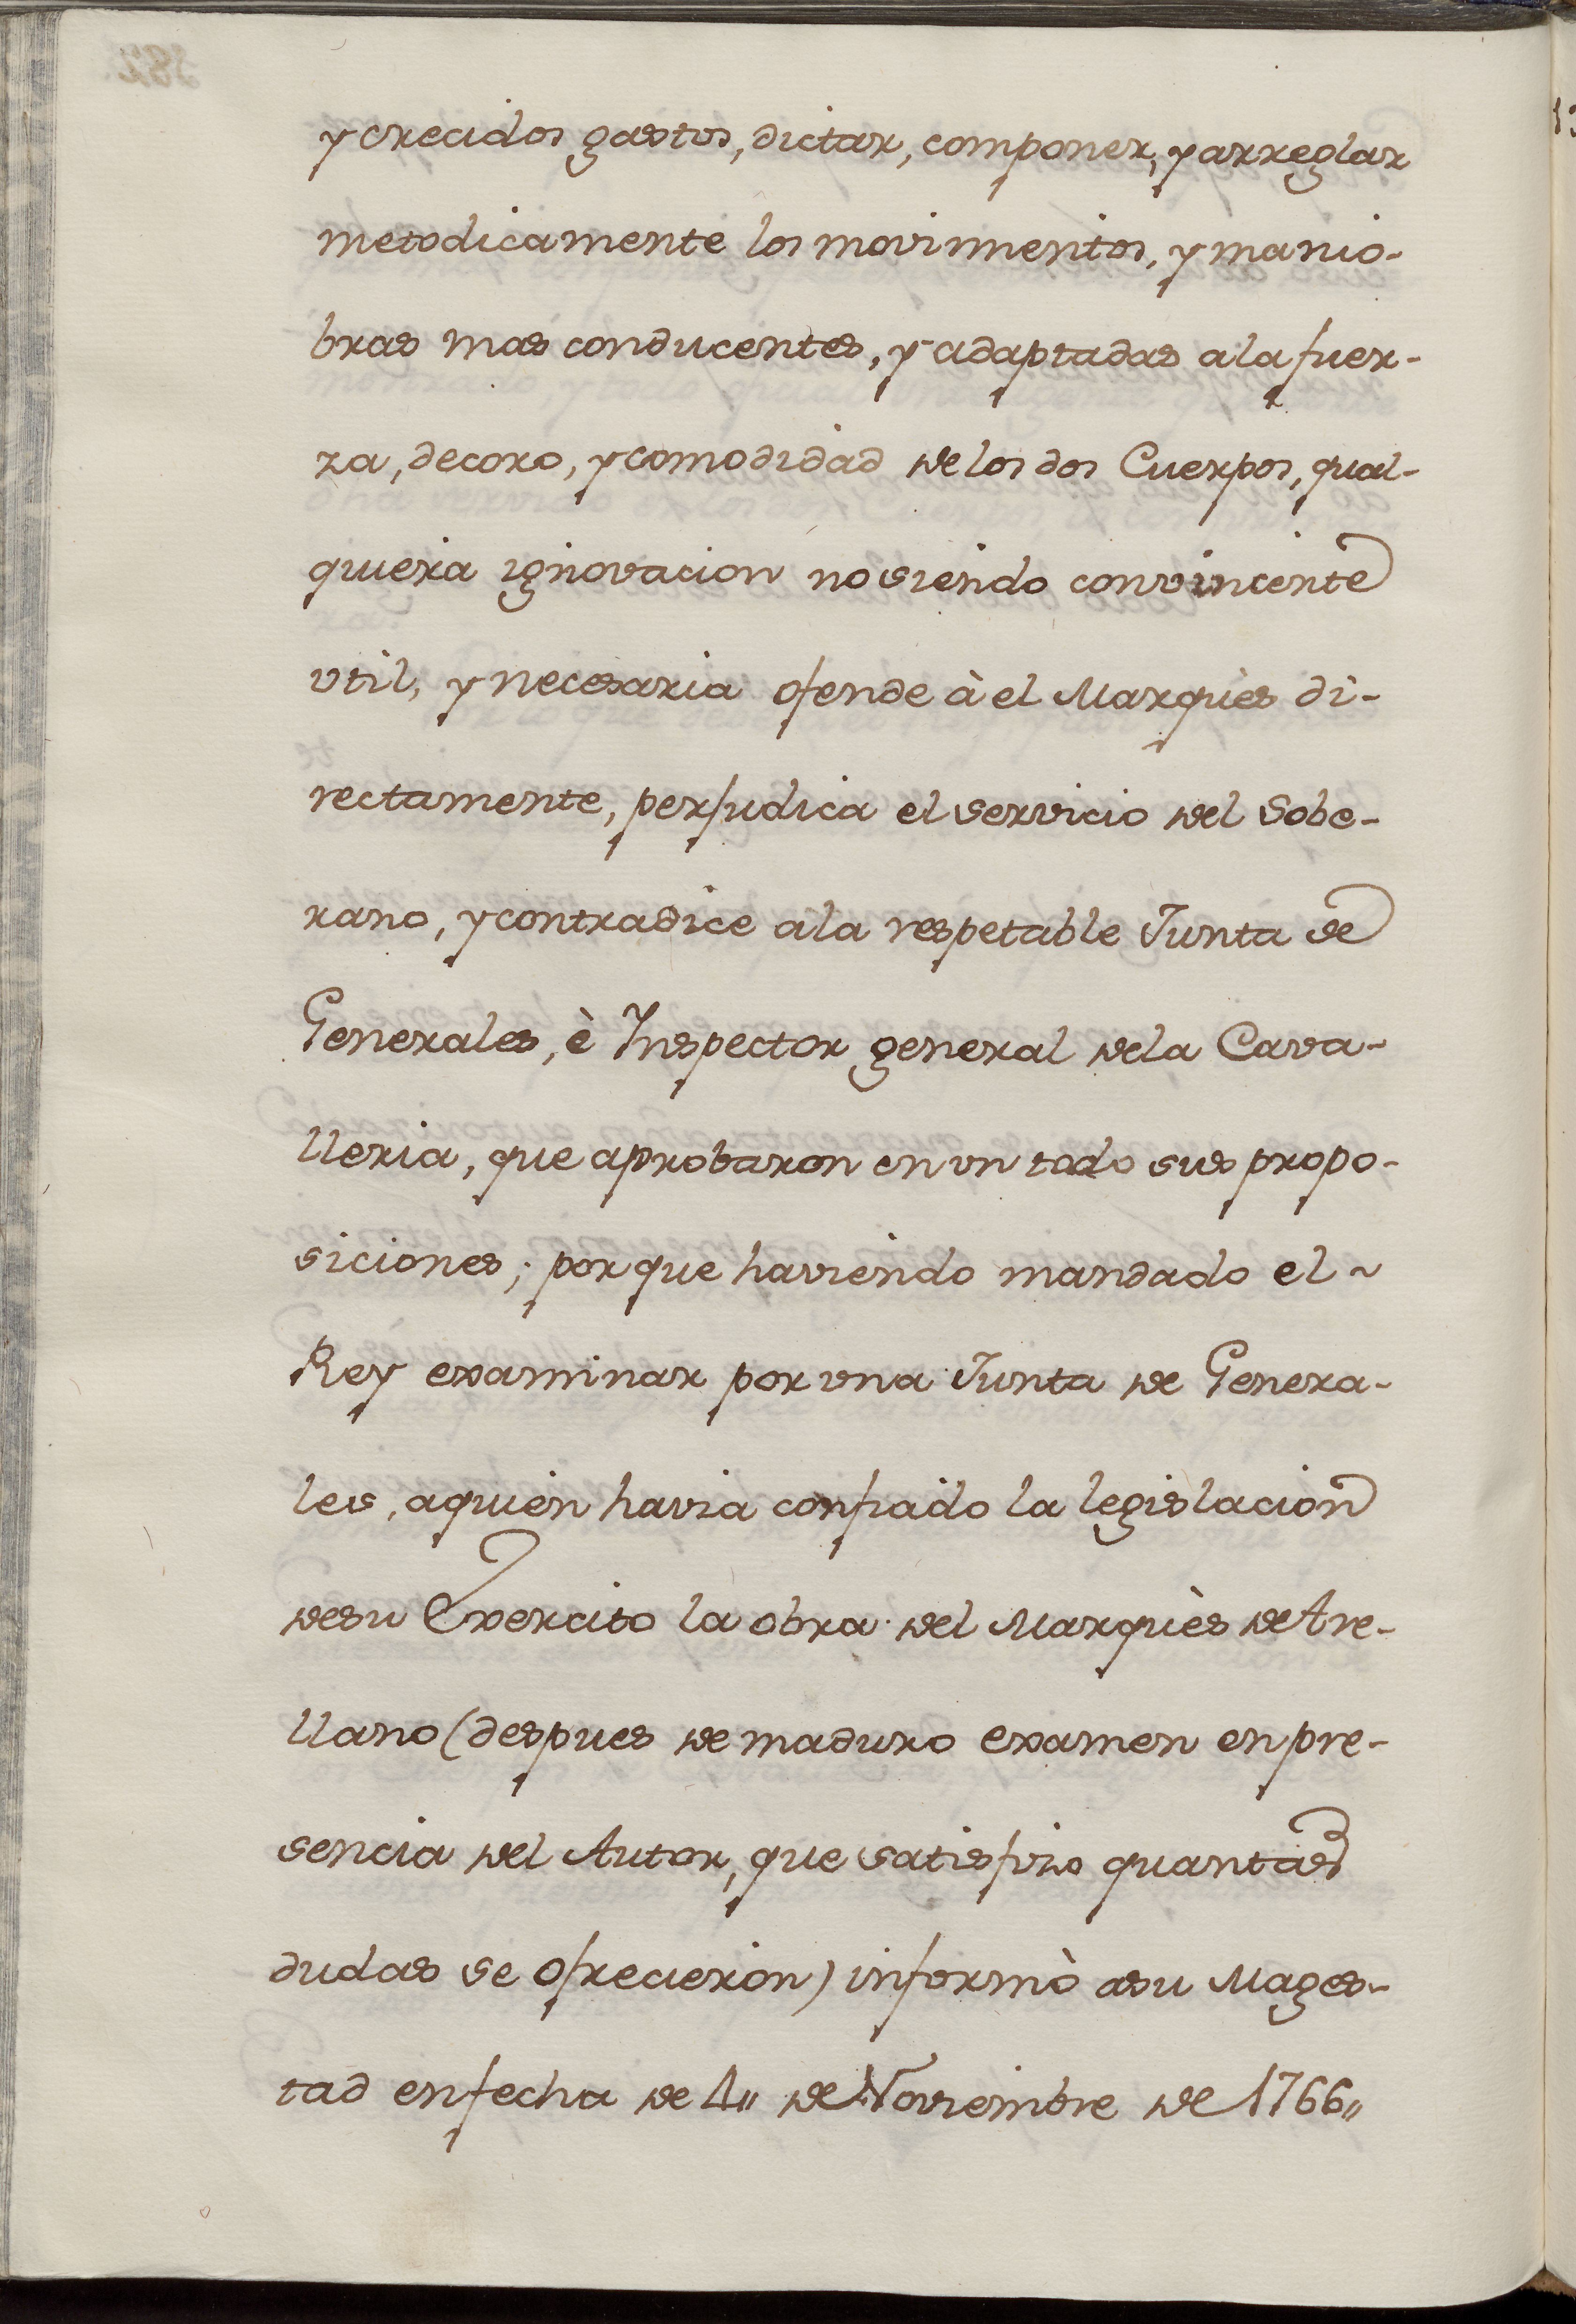 y crecidos gastos, dictar, componer, y arreglar
metodicamente los movimientos, y manio-
bras mas conducentes, y adaptadas a la fuer-
za, decoro, y comodidad de los dos Cuerpos, qual-
quiera ignovacion no siendo convincente
vtil, y necesaria ofende à el Marquès di-
rectamente, perjudica el servicio del Sobe-
rano, y contradice a la respetable Junta de
Generales, è Inspector general de la Cava-
lleria, que aprobaron en vn todo sus propo-
siciones; porque haviendo mandado el ~
Rey examinar por vna Junta de Genera-
les, a quien havia confiado la legislacion
de su Exercito la obra del Marquès de Are-
llano (despues de maduro examen en pre-
sencia del Autor, que satisfizo quantas
dudas se ofrecieron) informò a su Mages-
tad en fecha de 4,, de Noviembre de 1766,,